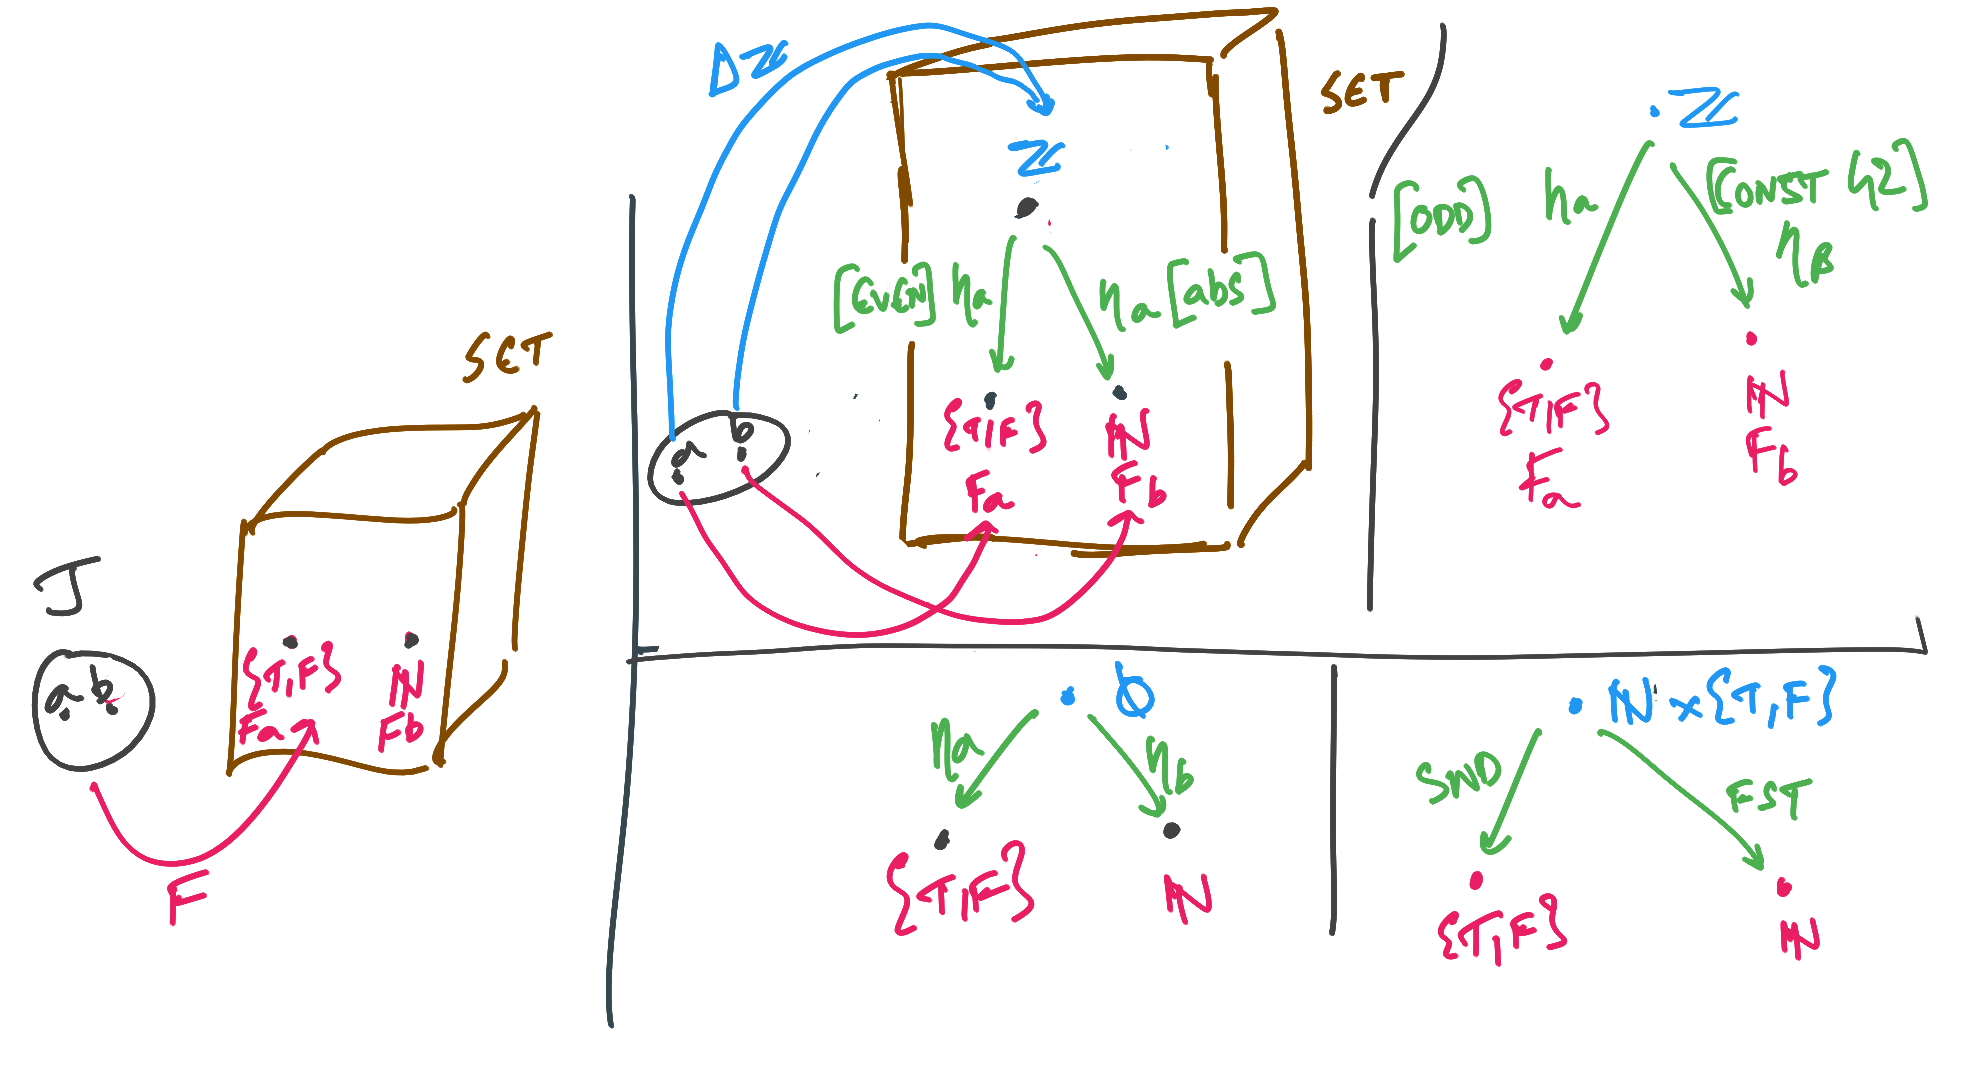 SET
J
a b
{T,F} N
Fa Fb
F
ΔZ
SET
Z
[EVEN] ηa ηa [abs]
a b
{T,F} N
Fa Fb
Z
[ODD] ηa [CONST 42]
ηB
{T,F} N
Fa Fb
ϕ
ηa ηb
{T,F} N
N x {T,F}
SND FST
{T,F} N